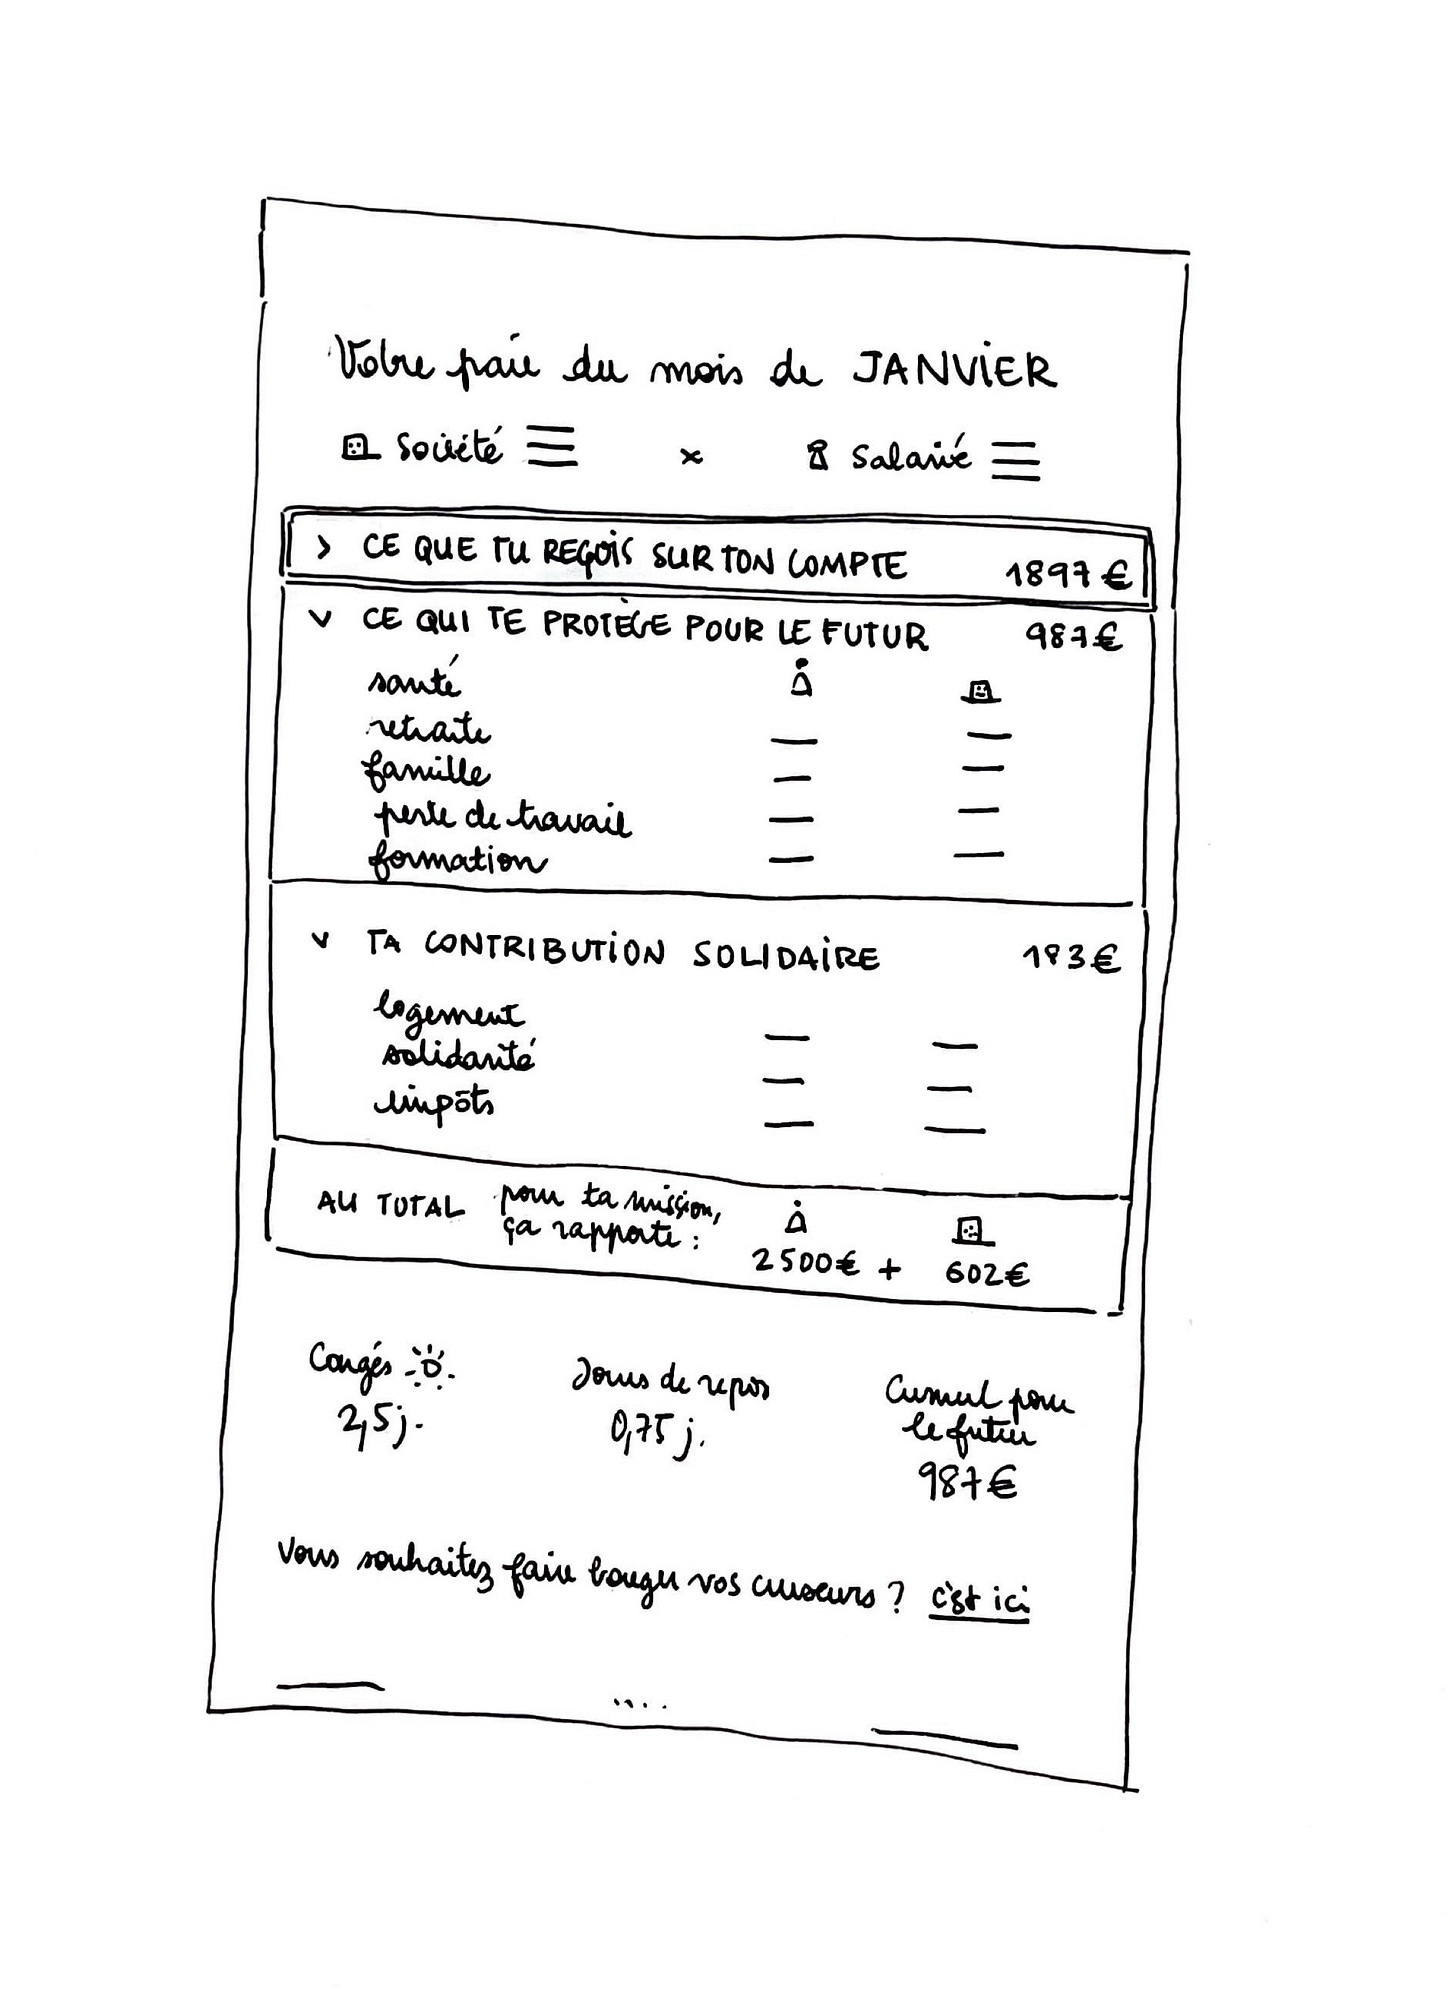 Votre paie du mois de JANVIER
Société x Salarié
> CE QUE TU REÇOIS SUR TON COMPTE 1897 €
v CE QUI TE PROTÈGE POUR LE FUTUR 987€
santé
retraite
famille
perte de travail
formation
v TA CONTRIBUTION SOLIDAIRE 183€
logement
solidarité
impôts
AU TOTAL pour ta mission,
ça rapporte :
2500€ + 602€
Congés Jours de repos Cumul pour
le futur
2,5j. 0,75 j. 987€
Vous souhaitez faire bouger vos curseurs ? c'est ici
....